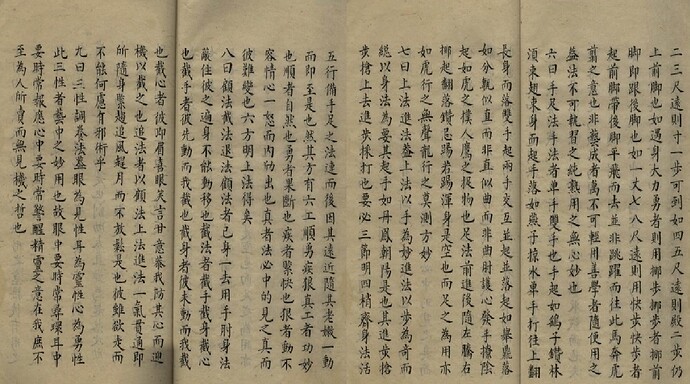 二三尺遠則寸一步可到如四五尺遠則殿二步仍
上前脚也如遇身大力勇者則用挪步挪步者挪前
脚即跟後脚也如一丈七八尺遠則用快步快步者
起前脚帶後脚平飛而去並非跳躍而往此馬奔虎
剪之意也非藝成者萬不可輕用善學者隨便用之
益法不可執習之純熟用之無心妙也
六曰手足法手法者單手雙手也手起如鷂子鑽林
須束翅束身而起手落如燕子掠水單手打往上翻
長身而落雙手起兩手交互並起並落起如舉鼎落
如分瓢似直而非直似曲而非曲肘護心發手撩陰
起如虎之僕人鷹之捉物也足法前進後隨左騰右
挪起翻落鑽忌踢若踢渾身是空也而足之為用亦
如虎行之無聲龍行之莫測方妙
七曰上法進法蓋上法以手為妙進法以步為奇而
總以身法為要其起手如丹鳳朝陽是也其進步搶
步搶上去進步採打也要必三節明四梢齊身法活
五行備手足之法連而後因其遠近隨其老嫩一動
而即至是也然其方有六工順勇疾狠真工者功妙
也順者自然也勇者果斷也疾者緊快也狠者動不
容情心一怒而內勁出也真者法必中的見之真而
彼難變也六方明上法得矣
八曰顧法截法追法顧法者已身一去用手肘身法
嚴住彼之遍身不能動移也截法者截手截身截心
也截手者彼先動而我截也截身者彼未動而我截
也截心者彼即眉喜眼笑言甘意恭我防其心而迎
機以截之也追法者以顧法上法進法一氣貫通即
所隨身緊趨追風趕月而不放鬆是也彼雖欲走而
不能何慮有邪術乎
九曰三性調養法蓋眼為見性耳為靈性心為勇性
此三性者藝中之妙用也故眼中要時常尋環耳中
要時常報應心中要時常驚醒精靈之意在我庶不
至為人所賣而無見機之哲也